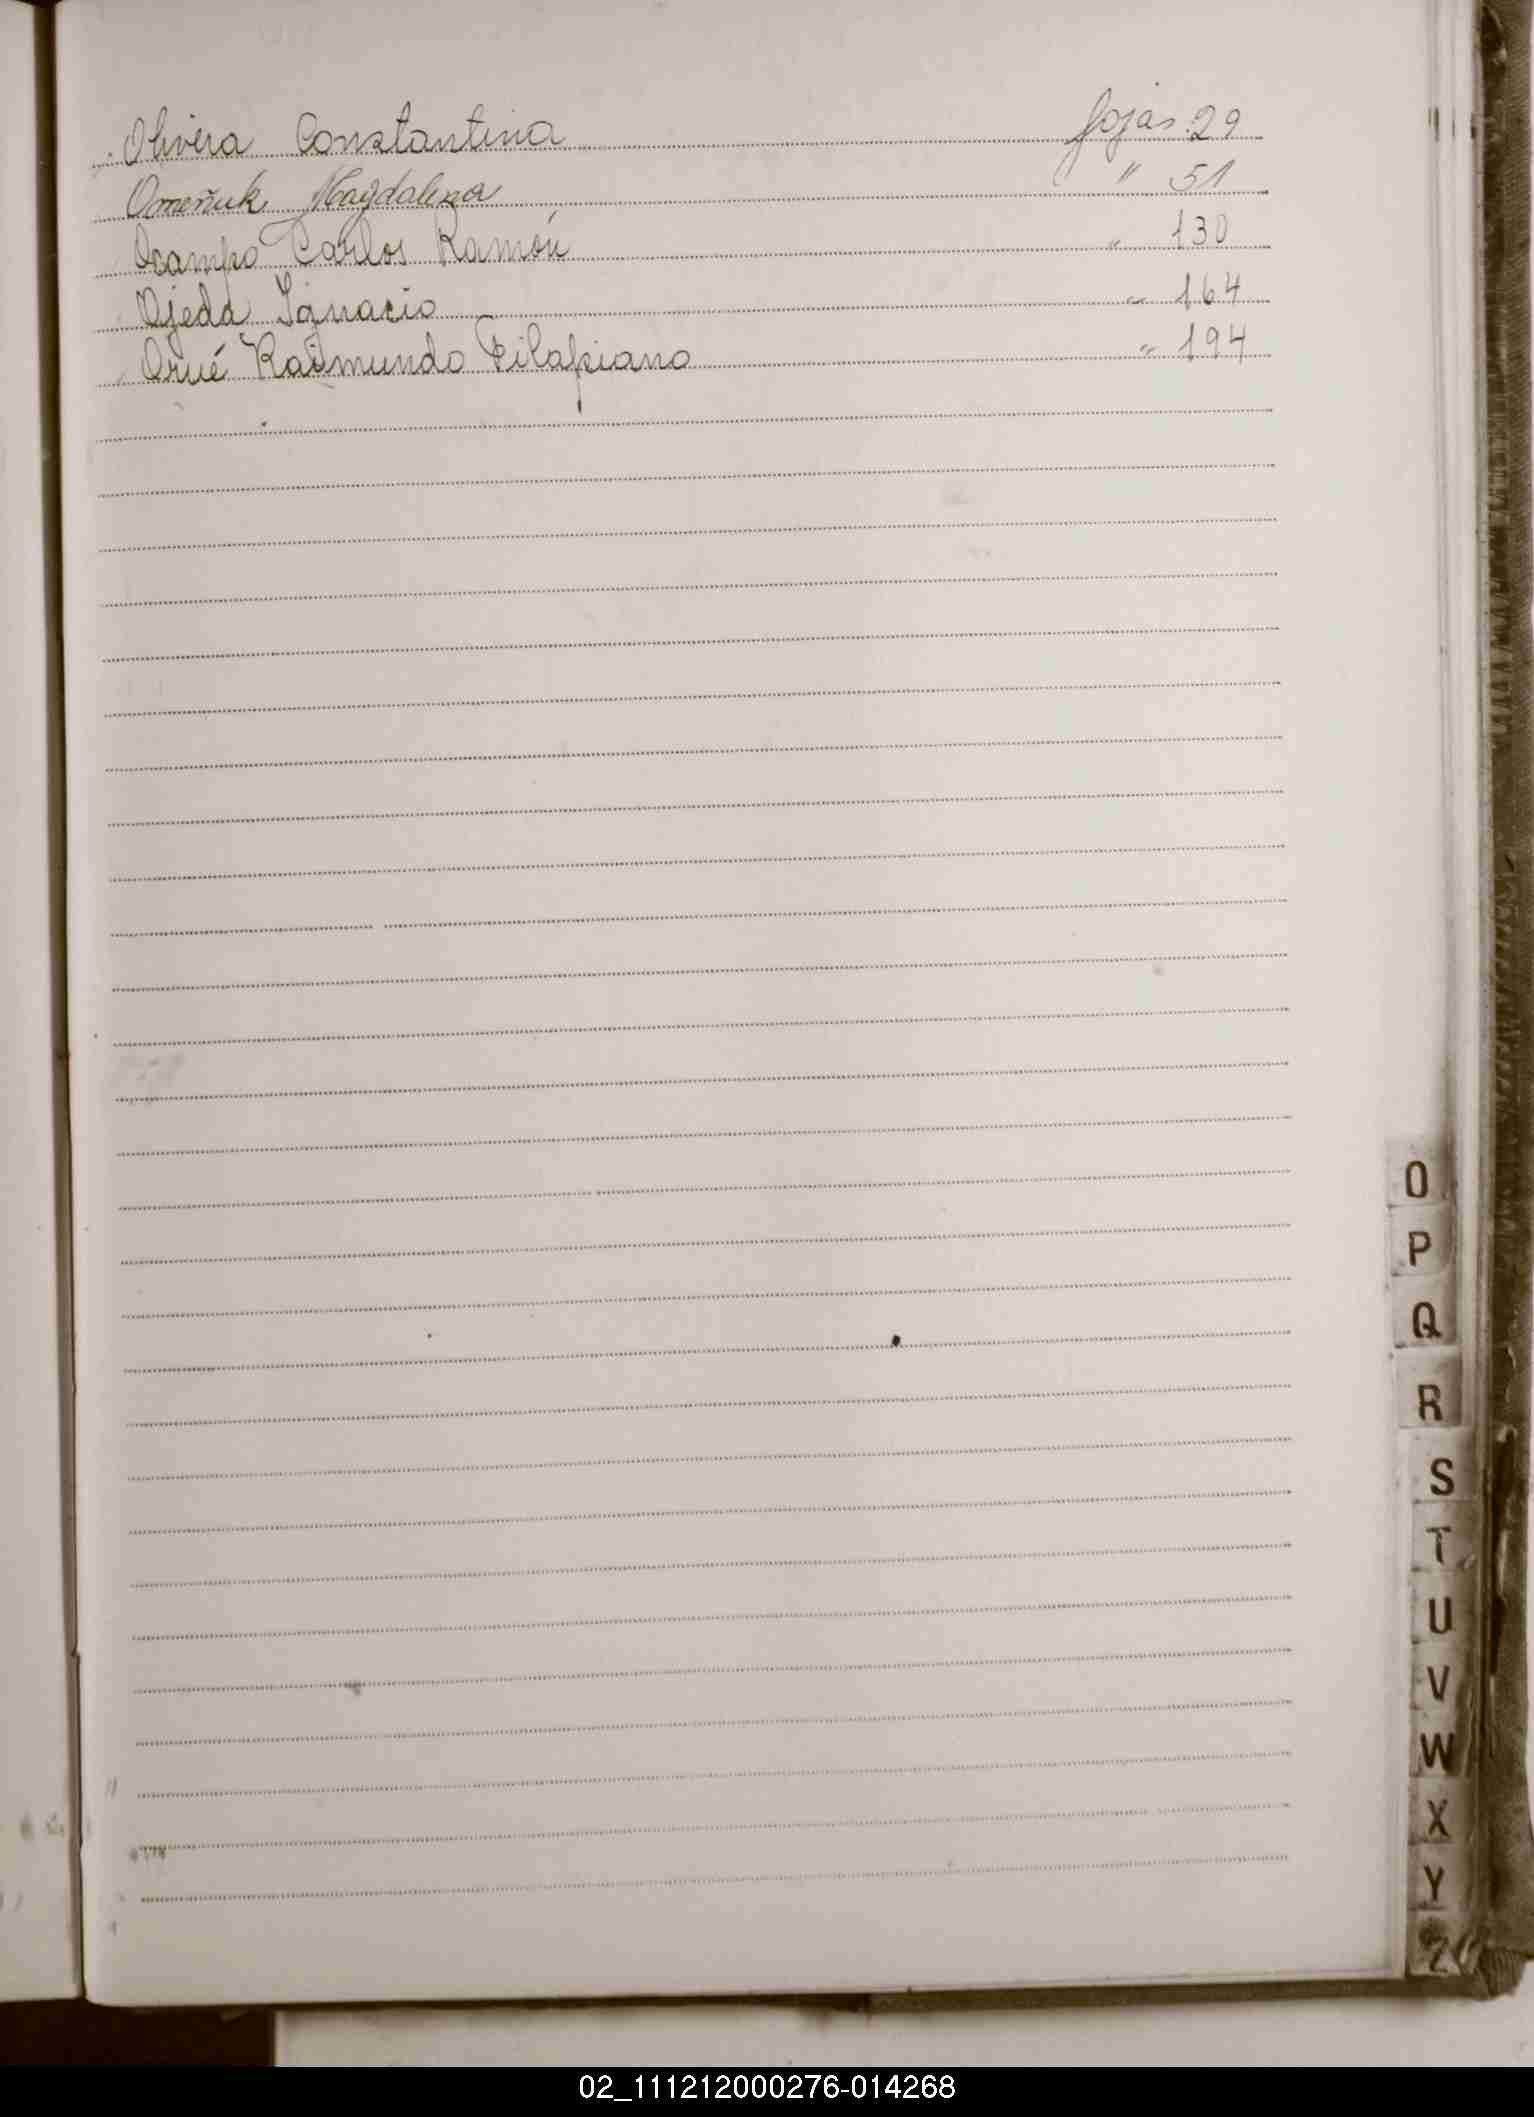 Olivera Constantina fojas 29
Omeñuk Magdalena " 51
Ocampo Carlos Ramón " 130
Ojeda Ignacio " 164
Orué Raimundo " 194
O
P
Q
R
S
T
U
V
W
X
Y
Z
02_111212000276-014268